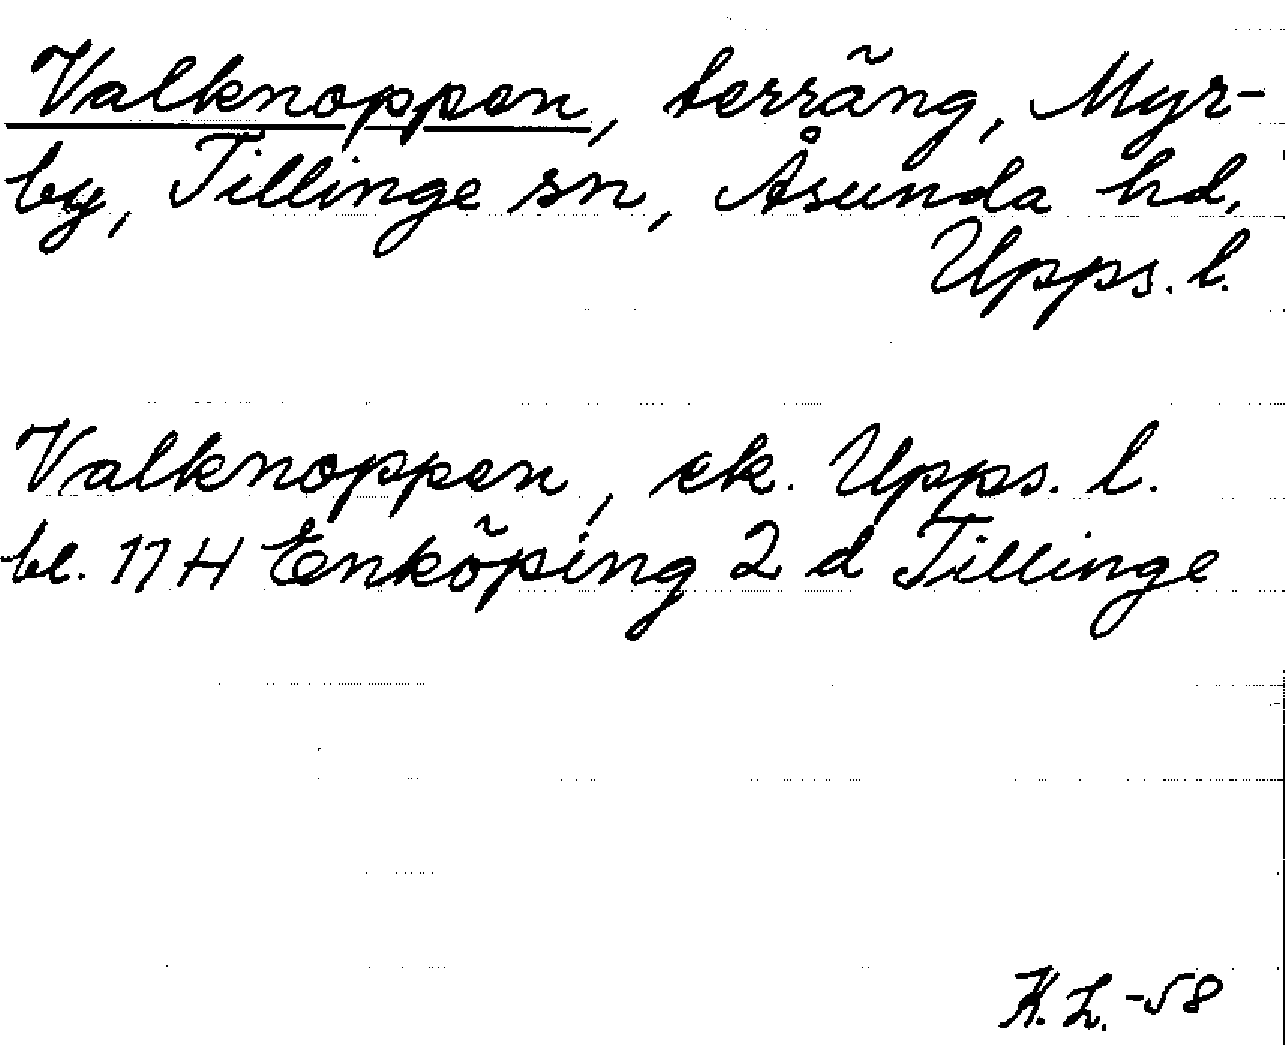 Valknoppen, terräng, Myr-
by, Tillinge sn, Åsunda hd,
Upps. l.
Valknoppen, ek. Upps. l.
bl. 11 H Enköping 2 d Tillinge
K. L. -58